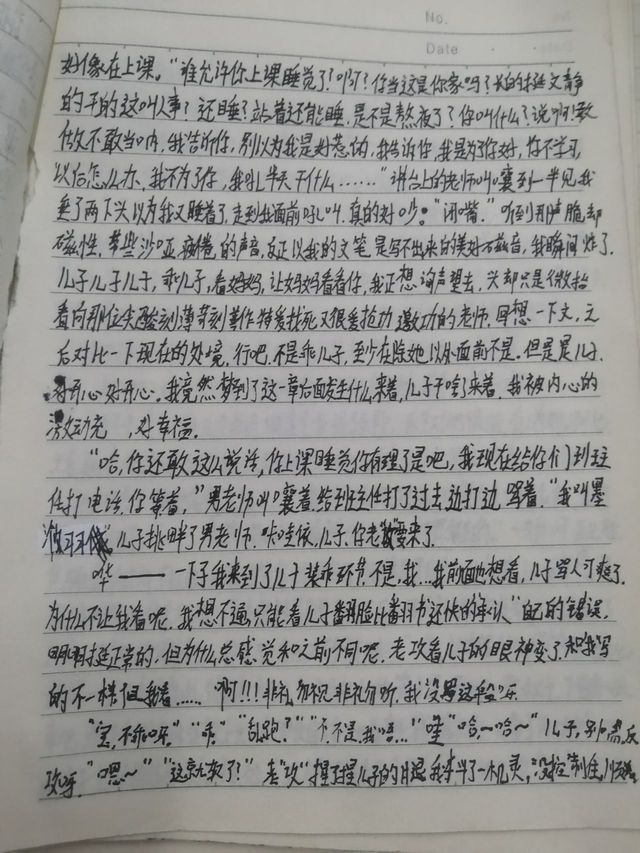 No.
Date
好像在上课。“谁允许你上课睡觉了?啊?你当这是你家吗?长的挺文静
的干的这叫人事?还睡?站着还能睡,是不是熬夜了?你叫什么?说啊!敢
做不敢当啊,我告诉你,别以为我是好惹的,我告诉你,我是为你好,你不学习,
以后怎么办、我不为了你,我吼半天干什么……”讲台上的老师叫嚷到一半见我
垂了两下头以为我又睡着了,走到我面前吼叫.真的好吵。“闭嘴.”听到那清脆却
磁性,带些沙哑,疲倦的声音,反正以我的文笔是写不出来的美好磁音,我瞬间炸了.
儿子儿子儿子,乖儿子,看妈妈,让妈妈看看你,我正想询声望去,头却只是微抬
看向那位尖酸刻薄苛刻 特爱找死又很爱抢功 邀功的老师.回想一下文,元
后对比一下现在的处境,行吧,不是乖儿子,至少在除她以外面前不是.但是是儿子.
好开心好开心。我竟然梦到了这一章后面发生什么来着,儿子干啥了来着.我被内心的
激动充 ,好幸福.
“哈,你还敢这么说话,你上课睡觉你有理了是吧,我现在给你们班主
任打电话,你等着,”男老师叫嚷着,给班主任打了过去,边打边骂着.“我叫墨
”儿子挑衅了男老师.咔哇依,儿子.你老攻要来了
哗——一下子我来到了儿子装乖环节.不是,我…我前面也想看,儿子骂人可爽了.
为什么不让我看呢,我想不通,只能看儿子翻脸比翻书还快的承认“自己的错误.
明明挺正常的,但为什么总感觉和之前不同呢.老攻看儿子的眼神变了和我写
的不一样但我看……啊!!!非礼勿视非礼勿听.我没写这种呀
“宝,不乖呀.”“乖”“乱跑?”“不,不是,我唔…”“哈~哈~”儿子,别 反
攻呀.“嗯~”“这就软了?”老“攻”捏了捏儿子的腿我来斗了一机灵,没控制住,